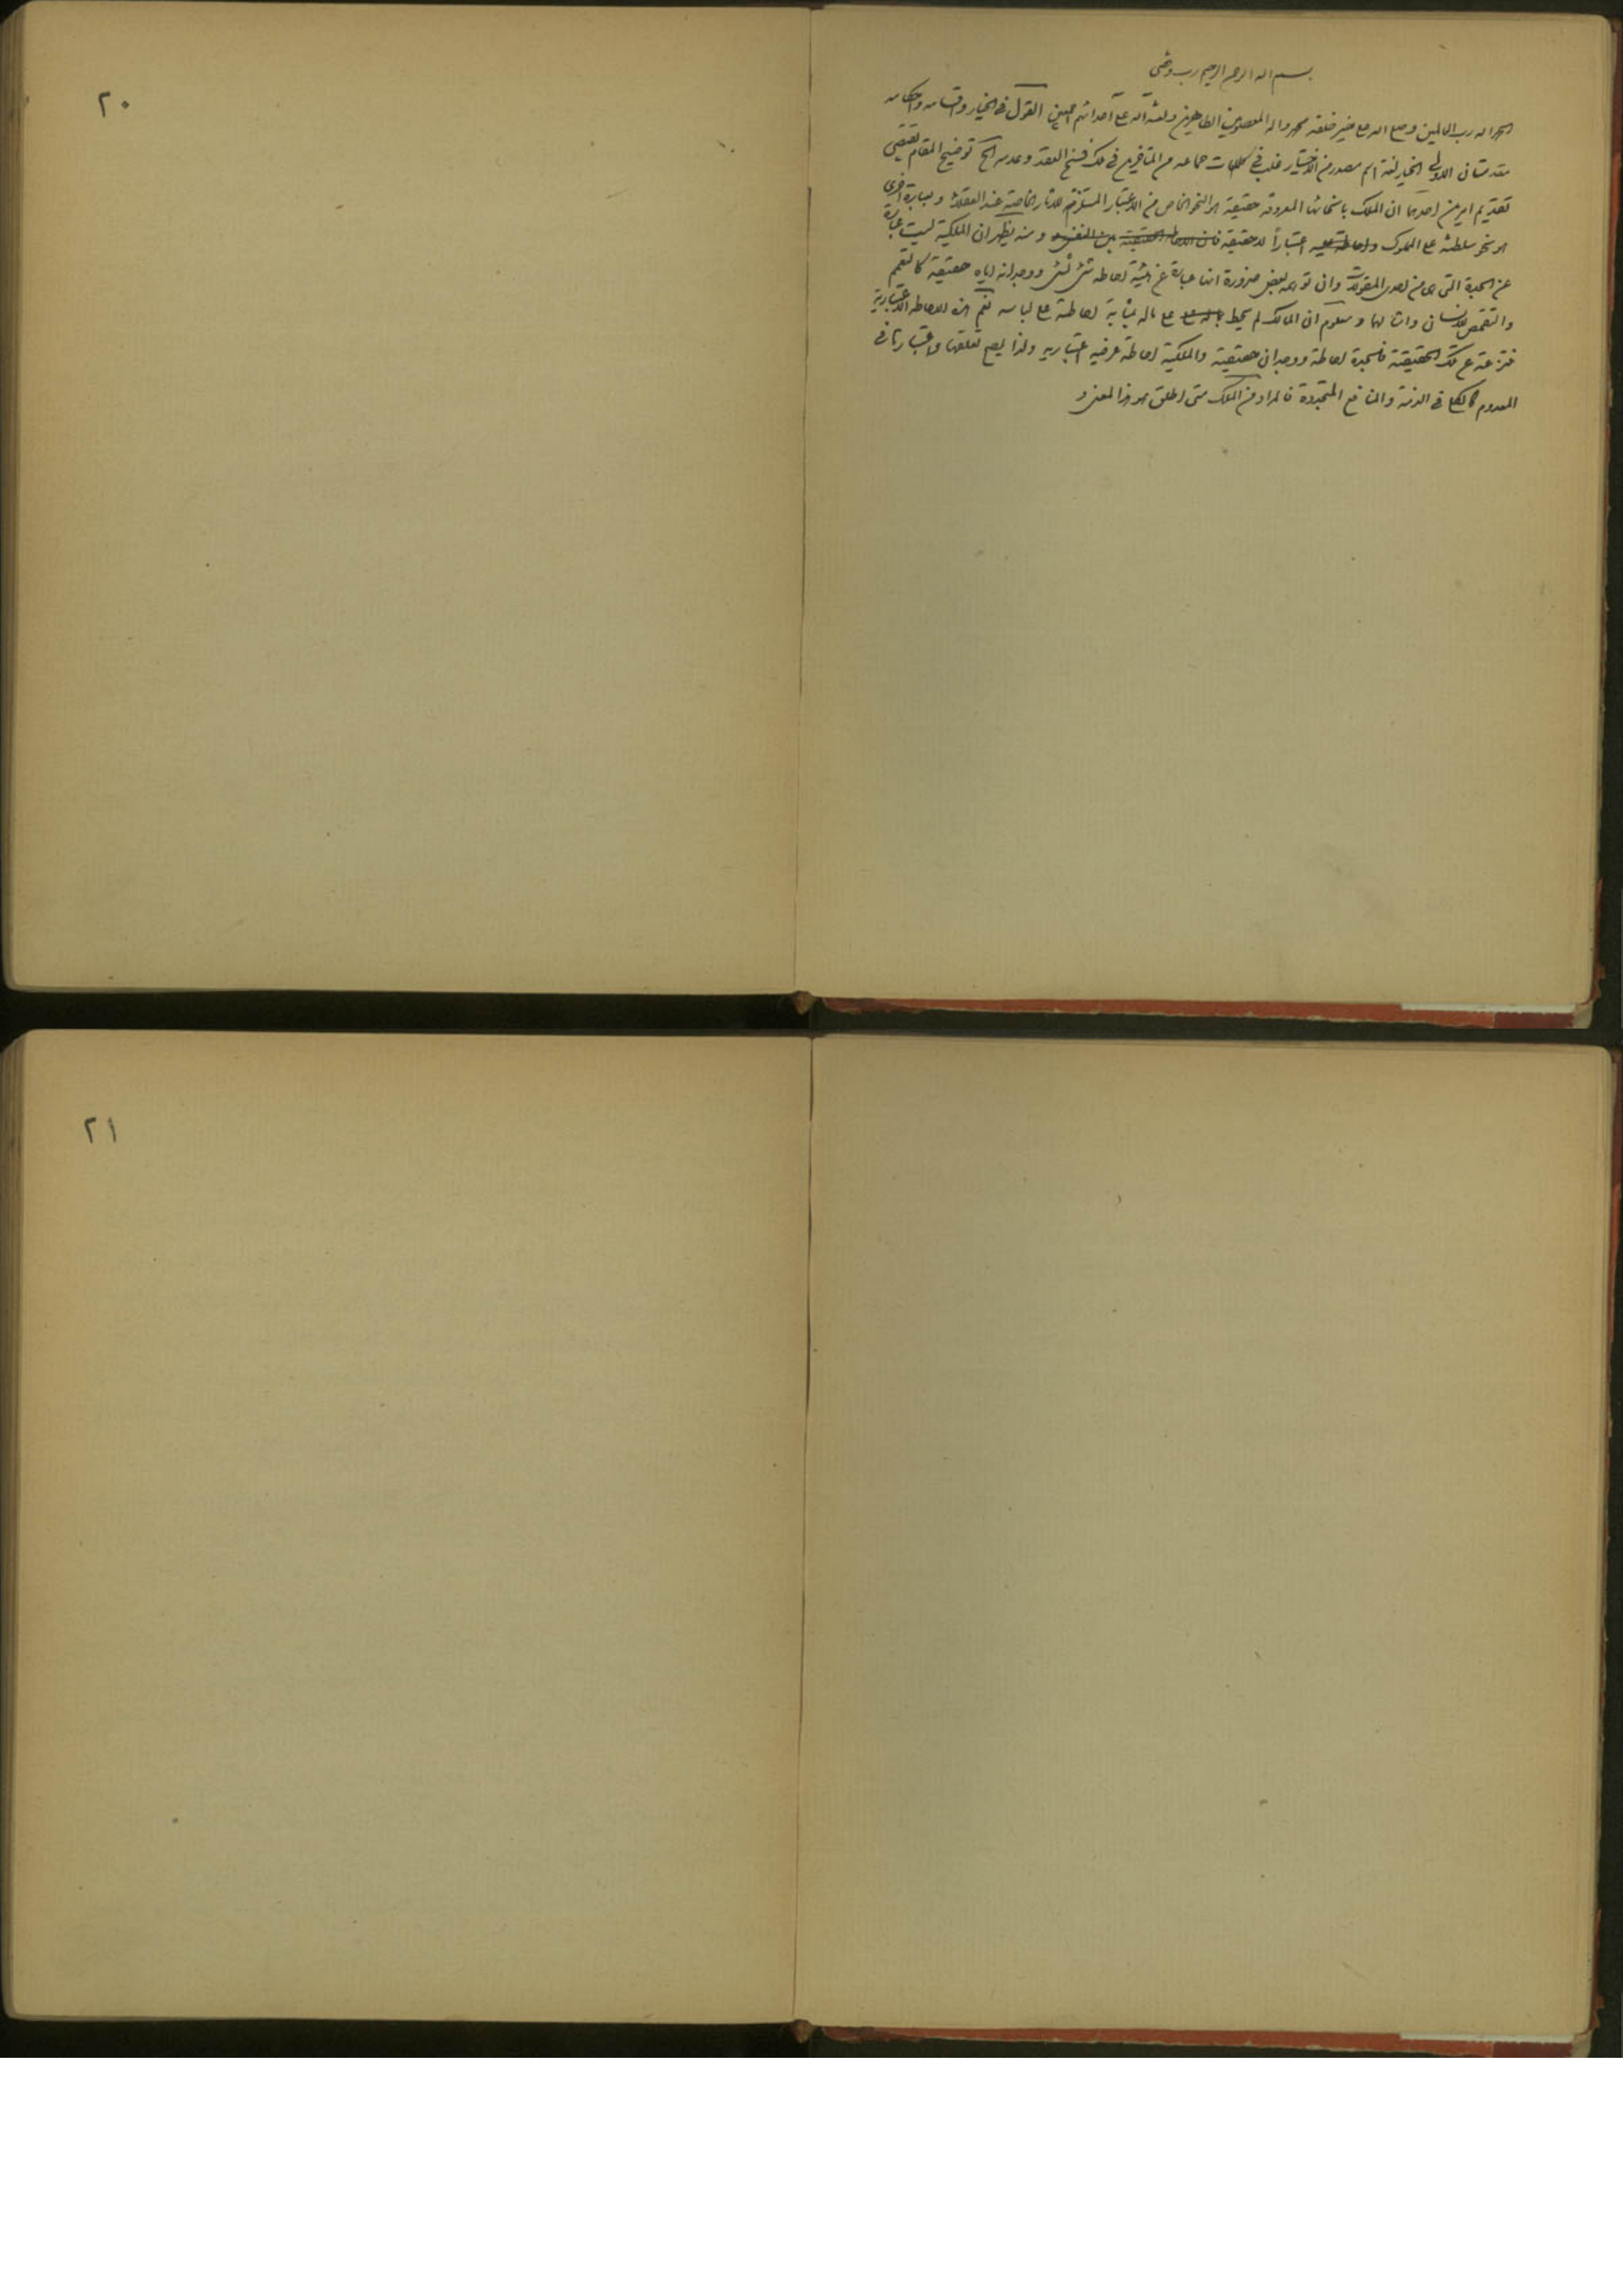 بسم الله الرحمن الرحيم رب وفقني
الحمد لله رب العالمين وصلى الله على خير خلقه محمد واله المعصومين الطاهرين ولعنة الله على اعدائهم اجمعين القول في الخيار واقسامه واحكامه
مقدمتان الاولى الخيار لغة اسم مصدر من الاختيار غلب في كلمات جماعه من المتاخرين في ملك فسخ العقد وعدمه الخ توضيح المقام يقتضي
تقديم امرين احدهما ان الملك بانحائها المعروفه حقيقة هو النحو الخاص من الاعتبار المستلزم للاثار الخاصة عند العقلاء وبعبارة اخرى
هو نحو سلطنة على المملوك واحاطة عليه اعتباراً لا حقيقة فان الاحاطة الحقيقية بين النفس و ومنه يظهر ان الملكية ليست عبارة
عن الجدة التي هي من احدى المقولات وان توهمه بعض ضرورة انها عبارة عن هيئة احاطه شئ لشئ ووجدانه اياه حقيقة كالتعمم
والتقمص للانسان وامثالها ومعلوم ان المالك لم يحط على ماله بمثابة احاطته على لباسه نعم هذه الاحاطه الاعتبارية
منتزعة عن تلك الحقيقية فالجدة احاطة ووجدان حقيقية والملكية احاطة عرفيه اعتباريه ولذا يصح تعلقها في
المعدوم كالكلي في الذمة والمنافع المتجددة فالمراد من الملك متى اطلق هو هذا المعنى و
٢٠
٢١